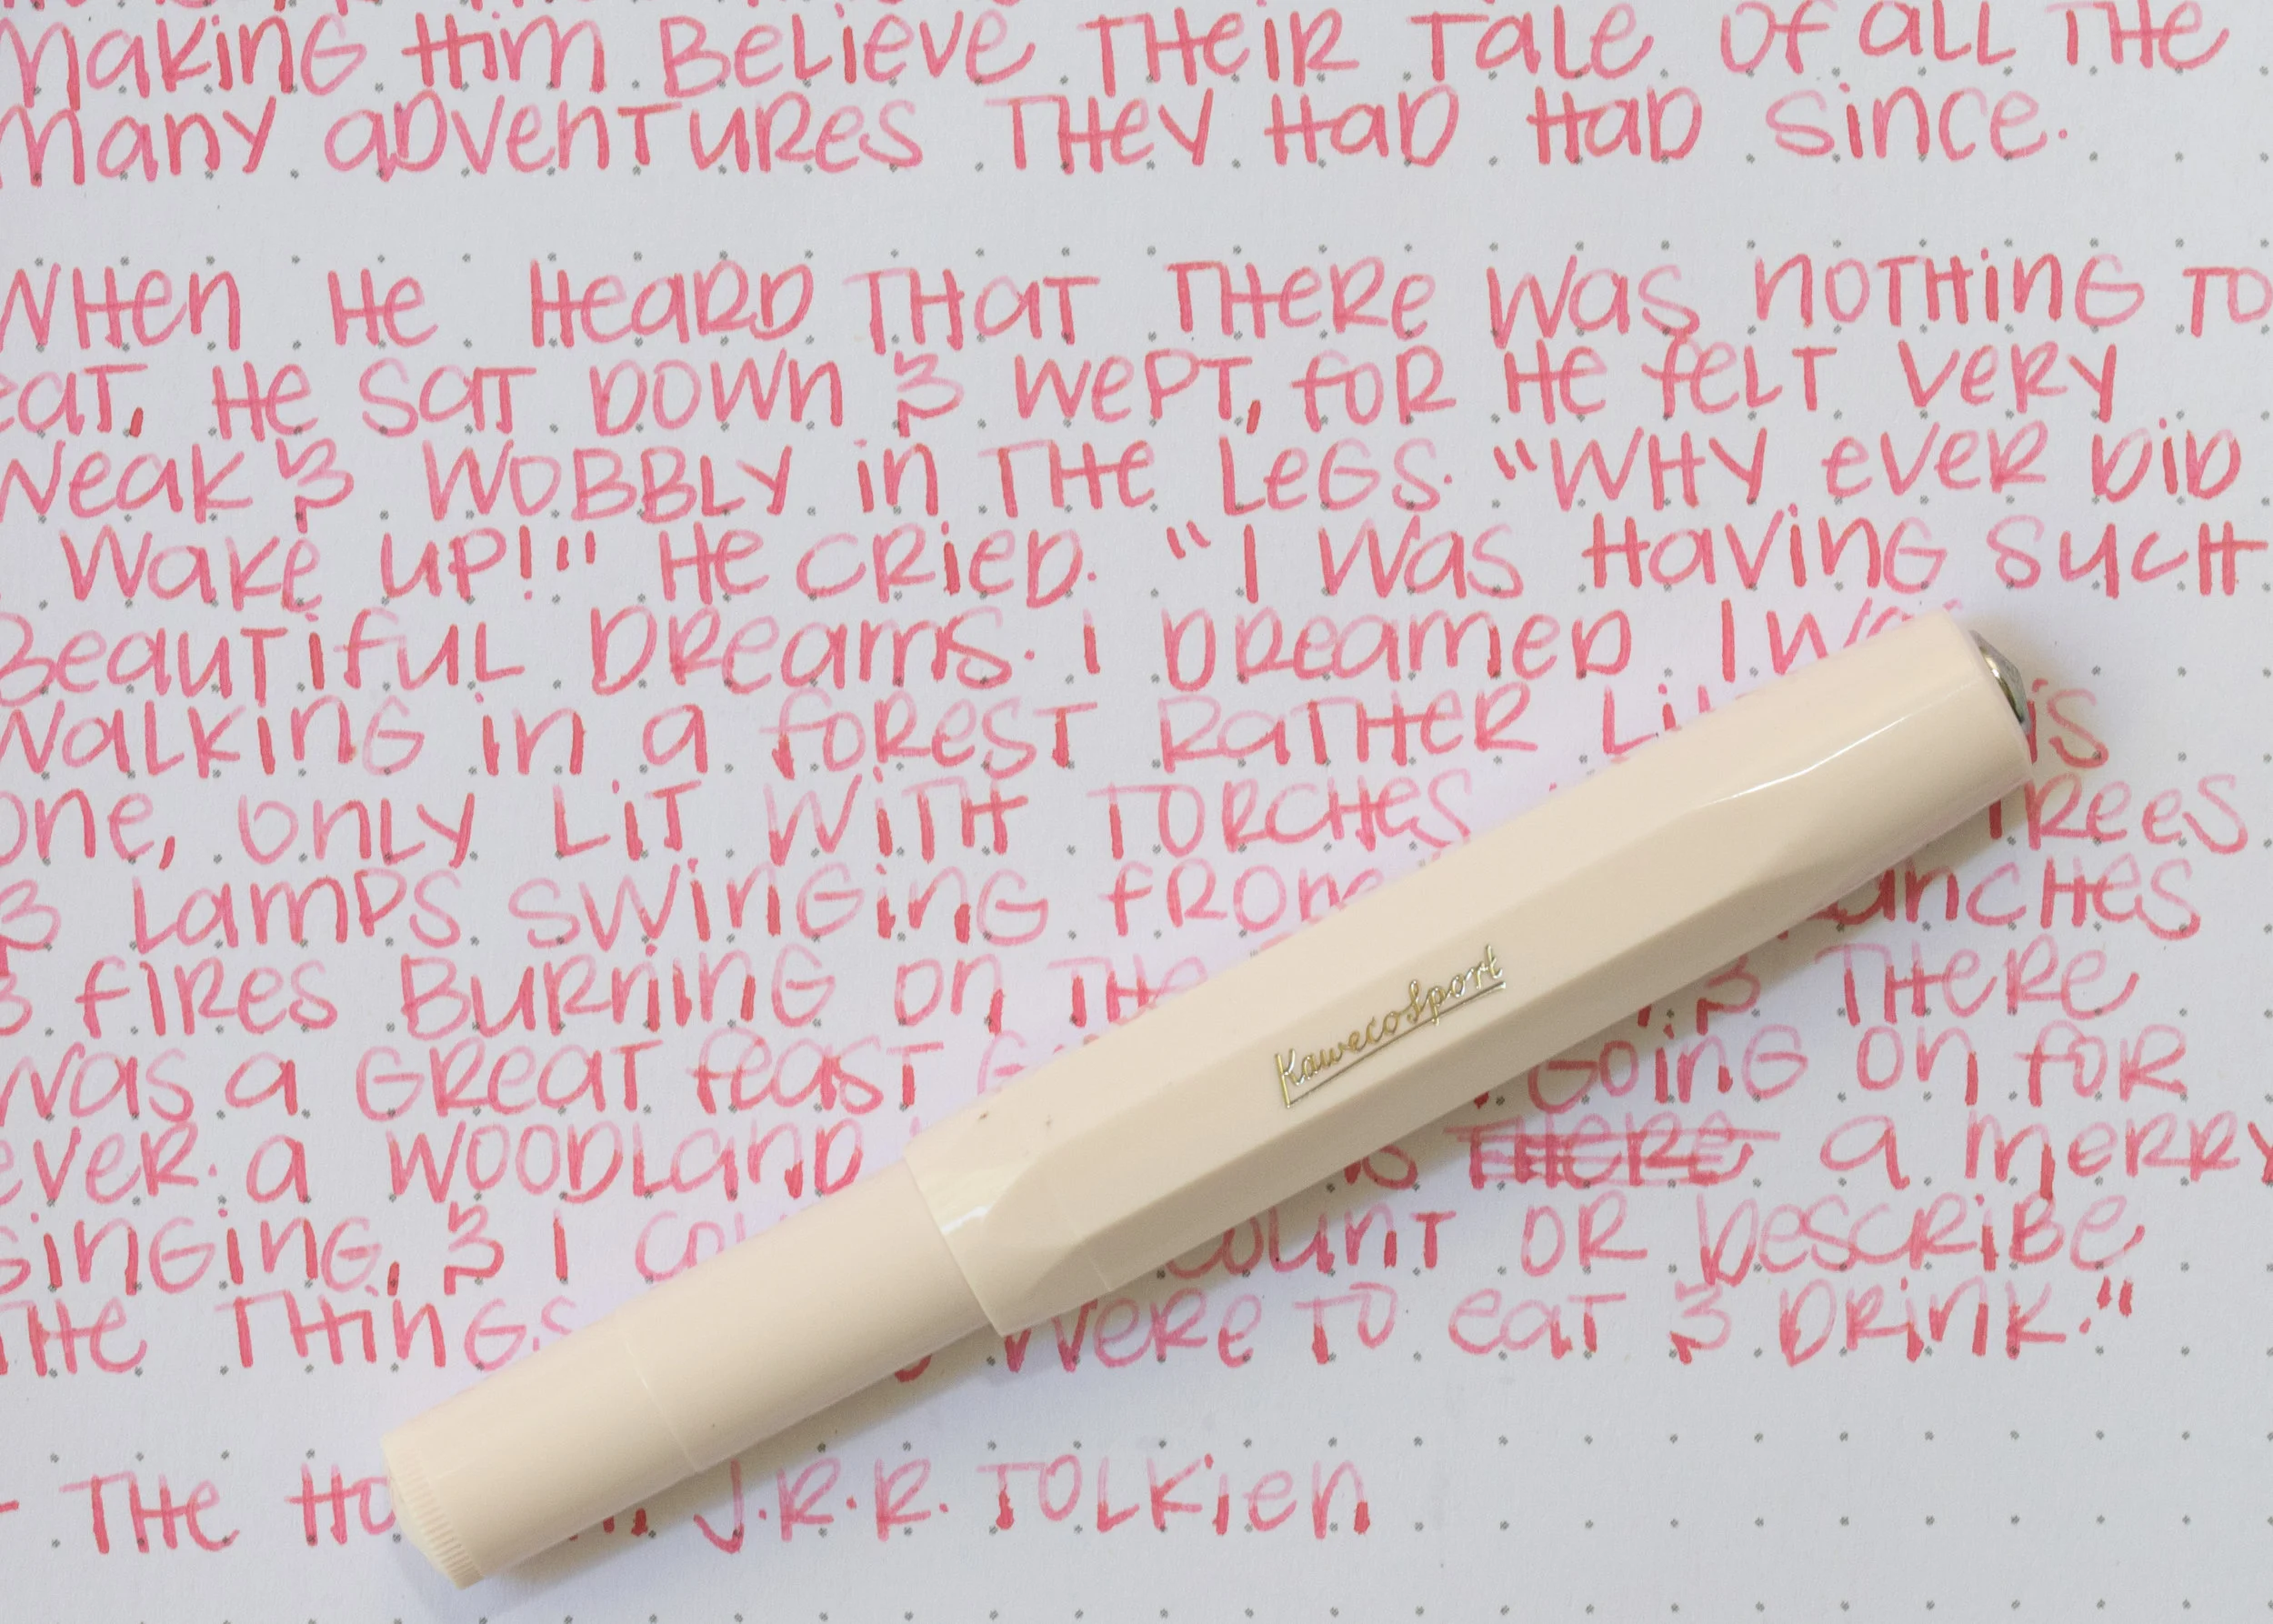 making him believe their tale of all the
many adventures they had had since.
When he heard that there was nothing to
eat, he sat down & wept, for he felt very
weak & wobbly in the legs. "Why ever did
I wake up!" he cried. "I was having such
beautiful dreams. I dreamed I was
walking in a forest rather like this
one, only lit with torches trees
& lamps swinging from branches
& fires burning on the & there
was a great feast going on for
ever. a woodland there a merry
singing, & I could count or describe
the things were to eat & drink."
- The Hobbit J.R.R. Tolkien
KawecoSport